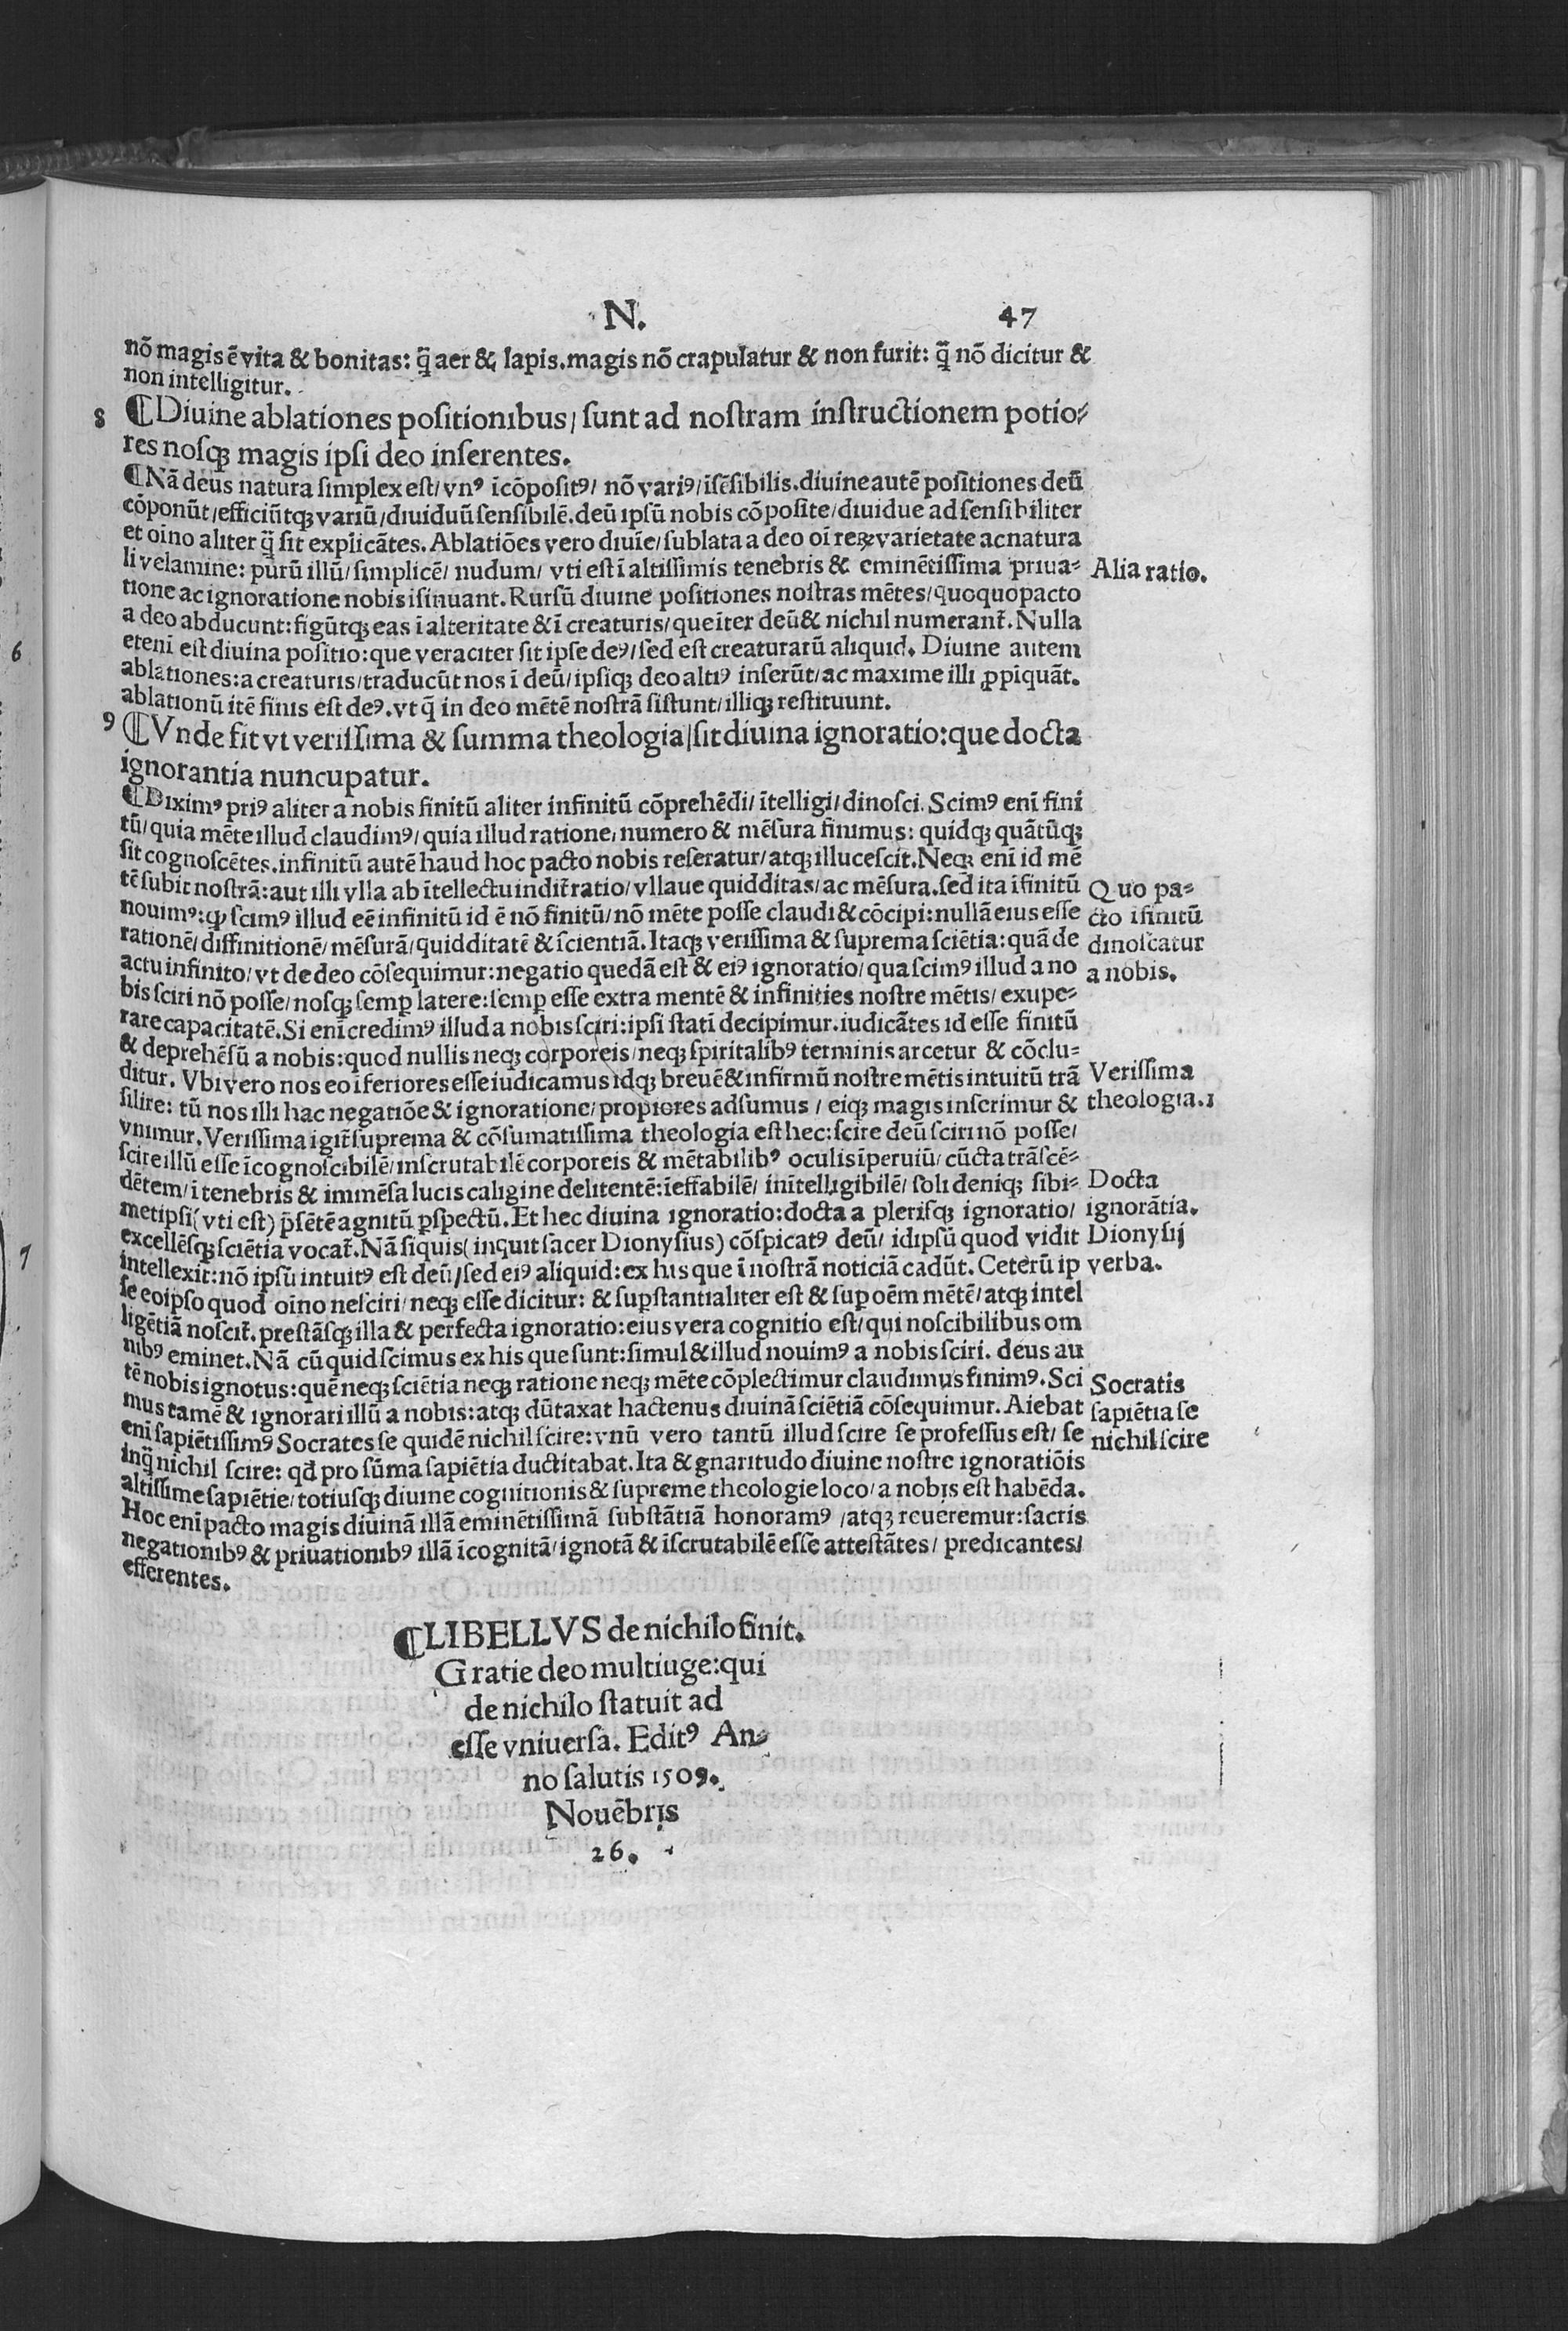 N. 47
nō magis ē vita & bonitas: q̄ aer & lapis. magis nō crapulatur & non furit: q̄ nō dicitur &
non intelligitur.
8 ¶Diuine ablationes positionibus/ sunt ad nostram instructionem potio⸗
res nosqꝫ magis ipsi deo inserentes.
¶Nā deus natura simplex est/ vnꝰ īcōpositꝰ/ nō variꝰ/ īsēsibilis. diuine autē positiones deū
cōponūt/ efficiūtqꝫ variū/ diuiduū sensibilē. deū ipsū nobis cōposite/ diuidue ad sensibiliter
et oīno aliter q̄ sit explicātes. Ablatiōes vero diuīe/ sublata a deo oī reꝝ varietate ac natura
li velamine: purū illū/ simplicē/ nudum/ vti est ī altissimis tenebris & eminētissima priua⸗
Alia ratio.
tione ac ignoratione nobis isinuant. Rursū diuine positiones nostras mētes/ quoquopacto
a deo abducunt: figūtqꝫ eas ī alteritate & ī creaturis/ que īter deū & nichil numerant̄. Nulla
6
etenī est diuina positio: que veraciter sit ipse deꝰ/ sed est creaturarū aliquid. Diuine autem
ablationes: a creaturis/ traducūt nos ī deū/ ipsiqꝫ deo altiꝰ inserūt/ ac maxime illi ꝓpiquāt.
ablationū itē finis est deꝰ. vt q̄ in deo mētē nostrā sistunt/ illiqꝫ restituunt.
9 ¶Vnde fit vt verissima & summa theologia/ sit diuina ignoratio: que docta
ignorantia nuncupatur.
¶Diximꝰ priꝰ aliter a nobis finitū aliter infinitū cōprehēdi/ ītelligi/ dinosci. Scimꝰ enī fini
tū/ quia mēte illud claudimꝰ/ quia illud ratione/ numero & mēsura finimus: quidqꝫ quātūqꝫ
sit cognoscētes. infinitū autē haud hoc pacto nobis reseratur/ atqꝫ illucescit. Neqꝫ enī id mē
tē subit nostrā: aut illi vlla ab ītellectu indit̄ ratio/ vllaue quidditas/ ac mēsura. sed ita īfinitū
Quo pa⸗
nouimꝰ: ꝙ scimꝰ illud eē infinitū id ē nō finitū/ nō mēte posse claudi & cōcipi: nullā eius esse
cto ifinitū
rationē/ diffinitionē/ mēsurā/ quidditatē & scientiā. Itaqꝫ verissima & suprema sciētia: quā de
dinoscatur
actu infinito/ vt de deo cōsequimur: negatio quedā est & eiꝰ ignoratio/ qua scimꝰ illud a no
a nobis.
bis sciri nō posse/ nosqꝫ semꝑ latere: semꝑ esse extra mentē & infinities nostre mētis/ exupe⸗
rare capacitatē. Si enī credimꝰ illud a nobis sciri: ipsi stati decipimur. iudicātes id esse finitū
& deprehēsū a nobis: quod nullis neqꝫ corporeis/ neqꝫ spiritalibꝰ terminis arcetur & cōclu⸗
ditur. Vbi vero nos eo īferiores esse iudicamus idqꝫ breuē & infirmū nostre mētis intuitū trā
Verissima
silire: tū nos illi hac negatiōe & ignoratione/ propiores adsumus / eiqꝫ magis inserimur &
theologia.
vnimur. Verissima igit̄ suprema & cōsumatissima theologia est hec: scire deū sciri nō posse/
scire illū esse īcognoscibilē/ inscrutabilē corporeis & mētabilibꝰ oculis īperuiū/ cūcta trāscē⸗
dētem/ ī tenebris & immēsa lucis caligine delitentē: īeffabilē/ inītelligibilē/ soli deniqꝫ sibi⸗
Docta
metipsi (vti est) p̄sētē agnitū ꝑspectū. Et hec diuina ignoratio: docta a plerisqꝫ ignoratio/
ignorātia.
excellēsqꝫ sciētia vocat̄. Nā siquis (inquit sacer Dionysius) cōspicatꝰ deū/ idipsū quod vidit
Dionysij
7
intellexit: nō ipsū intuitꝰ est deū/ sed eiꝰ aliquid: ex his que ī nostrā noticiā cadūt. Ceterū ip
verba.
se eoipso quod oīno nesciri/ neqꝫ esse dicitur: & suꝑstantialiter est & suꝑ oēm mētē/ atqꝫ intel
ligētiā noscit̄. prestāsqꝫ illa & perfecta ignoratio: eius vera cognitio est/ qui noscibilibus om
nibꝰ eminet. Nā cū quid scimus ex his que sunt: simul & illud nouimꝰ a nobis sciri. deus au
tē nobis ignotus: quē neqꝫ sciētia neqꝫ ratione neqꝫ mēte cōplectimur claudimus finimꝰ. Sci
Socratis
mus tamē & ignorari illū a nobis: atqꝫ dūtaxat hactenus diuinā sciētiā cōsequimur. Aiebat
sapiētia se
enī sapiētissimꝰ Socrates se quidē nichil scire: vnū vero tantū illud scire se professus est/ se
nichil scire
inq̄ nichil scire: qđ pro sūma sapiētia ductitabat. Ita & gnaritudo diuine nostre ignoratiōis
altissime sapiētie/ totiusqꝫ diuine cognitionis & supreme theologie loco/ a nobis est habēda.
Hoc enī pacto magis diuinā illā eminētissimā substātiā honoramꝰ /atqꝫ reueremur: sacris
negationibꝰ & priuationibꝰ illā īcognitā/ ignotā & iscrutabilē esse attestātes/ predicantes/
efferentes.
¶LIBELLVS de nichilo finit.
Gratie deo multiuge: qui
de nichilo statuit ad
esse vniuersa. Editꝰ An⸗
no salutis 1509.
Nouēbris
26.